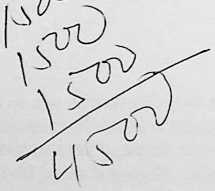 1500
1500
1500
4500